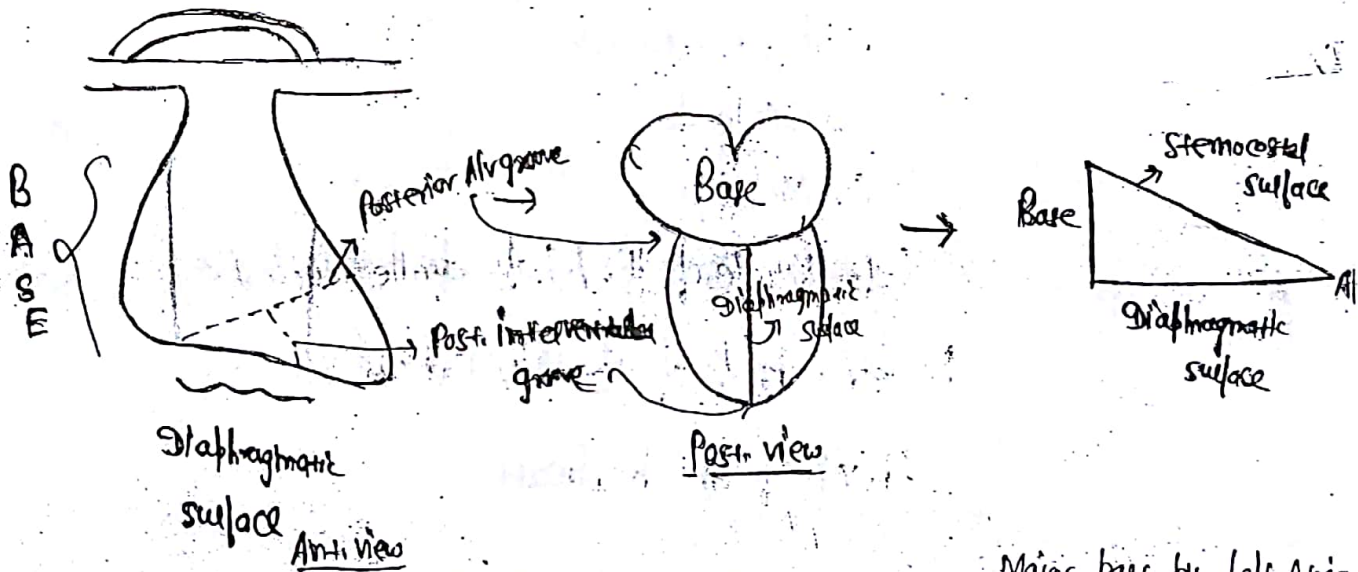 B
A
S
E
Posterior A/v groove
Post. interventricular
groove
Diaphragmatic
surface
Ant. view
Base
Diaphragmatic
surface
Post. view
Base
Sternocostal
surface
Diaphragmatic
surface
Major part by left